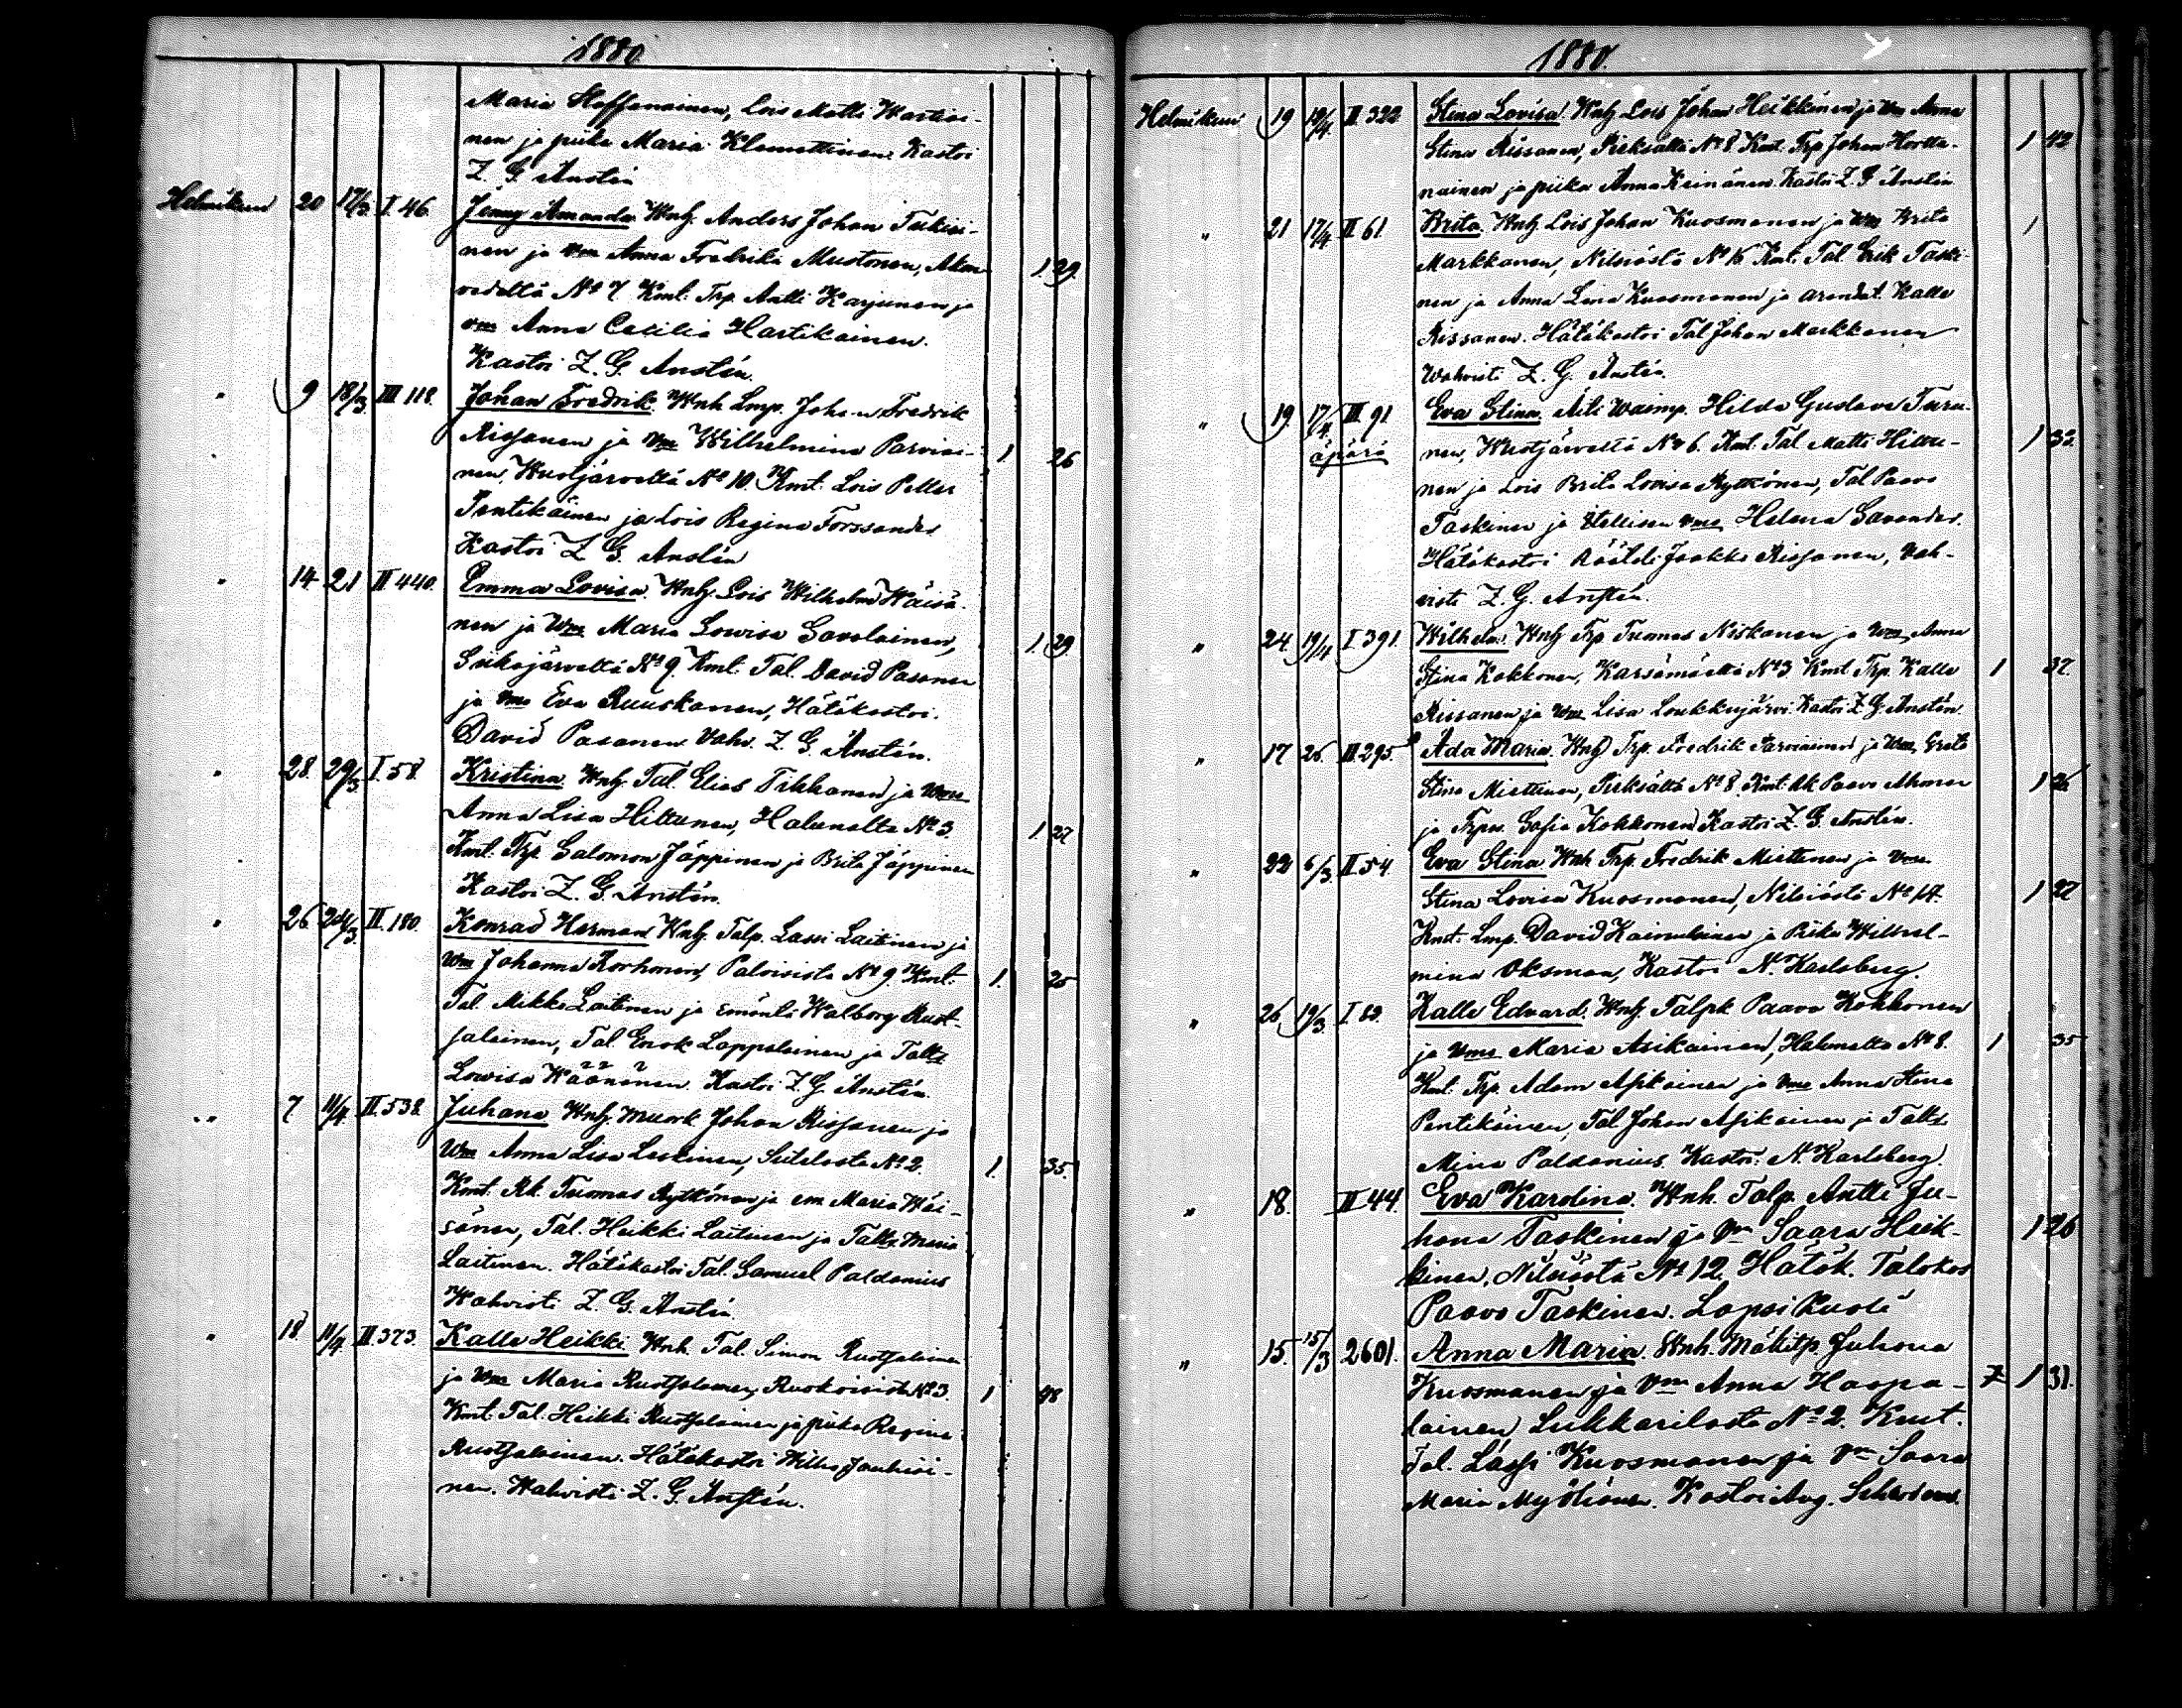 1880
Maria Steffanainen, Lois Matti Hartikai-
nen ja piika Maria Klemettinen. Kastoi
Z. G. Anstén
Helmikuu 20 17/3 I. 46. Jenny Amanda. Wnh. Anders Johan Tuikai-
nen ja Vm Anna Fredrika Mustonen, Akon-
vedeltä No 7. Kmt: Trp. Antti Karjunen ja 1 29.
vm Anna Cecilia Hartikainen.
Kastoi Z. G. Anstén.
" 9 18/3 III 118. Johan Fredrik. Wnh. Lmp. Johan Fredrik
Rissanen ja Vm Wilhelmina Parviai- 1 26
nen, Wuotjärveltä No 10. Kmt. Lois Petter
Pentikäinen ja Lois Regina Forssander
Kastoi Z. G. Anstén
" 14 21 II 440. Emma Lovisa. Wnh. Lois Wilhelm Wäisä-
nen ja Vm Maria Lowisa Savolainen, 1 29
Sukojärveltä No 9. Kmt. Tal. David Pasanen
ja Vmo Eva Ruuskanen, Hätäkastoi.
David Pasanen Vahv. Z. G. Anstén.
" 28. 29/3 I. 58. Kristina. Wnh. Tal. Elias Tikkanen ja Vmo
Anna Lisa Hiltunen, Halunalta No 3. 1 27
Kmt. Trp. Salomon Jäppinen ja Brita Jäppinen
Kastoi Z. G. Anstén.
" 26 24/3 II. 180. Konrad Herman Wnh. Talp. Lassi Laitinen ja
Vm Johanna Korhonen, Paloisista No 9. Kmt: 1. 25
Tal. Mikko Laitinen ja emäntä Walborg Ruot-
salainen, Tal. Enok Lappalainen ja Talts
Lowisa Wäänänen. Kastoi Z. G. Anstén.
" 7 11/4 II. 538. Juhana Wnh. Muork Johan Rissanen ja
Vm Anna Lisa Leskinen, Sutelasta No 2. 1. 35.
Kmt. Rk. Tuomas Rytkönen ja em. Maria Wäi-
sänen, Tal. Heikki Laitinen ja Talts Maria
Laitinen. Hätäkastoi Tal. Samuel Paldanius
Wahvisti Z. G. Anstén.
" 18. 11/4. II. 373. Kalle Heikki. Wnh. Tal. Simon Ruotsalainen
ja Vm Maria Ruotsalainen, Ruokoisista No 3. 1 48
Kmt. Tal. Heikki Ruotsalainen ja piika Regina
Ruotsalainen. Hätäkastoi Wille Jauhiai-
nen. Wahvisti Z. G. Anstén.
1880.
Helmikuu 19 19/4 II 322 Stina Lovisa. Wnh. Lois Johan Heikkinen ja Vm Anna
Stina Rissanen, Pieksältä No 8. Kmt. Trp. Johan Hortta- 1 42
nainen ja piika Anna Keinänen. Kastoi Z. G. Anstén
" 21 17/4 II 61. Brita. Wnh. Lois Johan Kuosmanen ja Vm Brita 1
Markkanen, Nilsiästä No 16. Kmt. Tal. Erik Taski-
nen ja Anna Lina Kuosmanen ja arendat. Kalle
Rissanen. Hätäkastoi Tal Johan Markkanen
Wahvisti Z. G. Anstén.
" 19. 17/4. III 91. Eva Stina. Äiti Waimp. Hilda Gustava Turu-
äpärä nen, Wuotjärveltä No 6. Kmt. Tal. Matti Hiltu- 1 32
nen ja Lois Brita Lovisa Rytkönen, Tal Paavo
Taskinen ja itellisen vmo Helena Savander.
Hätäkastoi Räätäli Jaakko Rissanen, Vah-
visti Z. G. Anstén.
" 24. 19/4 I 391. Wilhelm. Wnh. Trp. Tuomas Niskanen ja Vm Anna
Stina Kokkonen, Karsämäeltä No 3. Kmt. Trp. Kalle 1 37.
Rissanen ja Vm Lisa Loukkujärvi. Kastoi Z. G. Anstén.
" 17 26. III 295. Ada Maria. Wnh. Trp. Fredrik Parviainen ja Vm Greta
Stina Miettinen, Pieksältä No 8. Kmt. Rk Paavo Ahonen 1 26
ja Trpn. Sofia Kokkonen. Kastoi Z. G. Anstén.
" 22 6/3 II. 54. Eva Stina. Wnh. Trp. Fredrik Miettinen ja Vmo
Stina Lovisa Kuosmanen, Nilsiästä No 17. 1 27
Kmt. Lmp. David Kainulainen ja Piika Wilhel-
mina Oksman, Kastoi N. Karlsberg.
" 26 19/3 I. 82. Kalle Edvard. Wnh. Talpk Paavo Kokkonen
ja Vmo Maria Asikainen, Halunalta No 8. 1 35
Kmt. Trp. Adam Asikainen ja Vmo Anna Stina
Pentikäinen, Tal Johan Asikainen ja Talts
Mina Paldanius. Kastoi N. Karlsberg.
" 18. II 44. Eva Karolina. Wnh. Talp. Antti Ju-
hana Taskinen ja Vm Saara Heik- 1 26
kinen, Nilsiästä No 12. Hätäk. Talokas
Paavo Taskinen. Lapsi Kuoli
" 15. 15/3 2601. Anna Maria. Wnh. Mäkitp. Juhana
Kuosmanen ja Vm Anna Haapa- 1 31.
lainen Sukkarilasta No 2. Kmt.
Tal. Lassi Kuosmanen ja Vm Saara
Maria Myöhänen. Kastoi Aug.